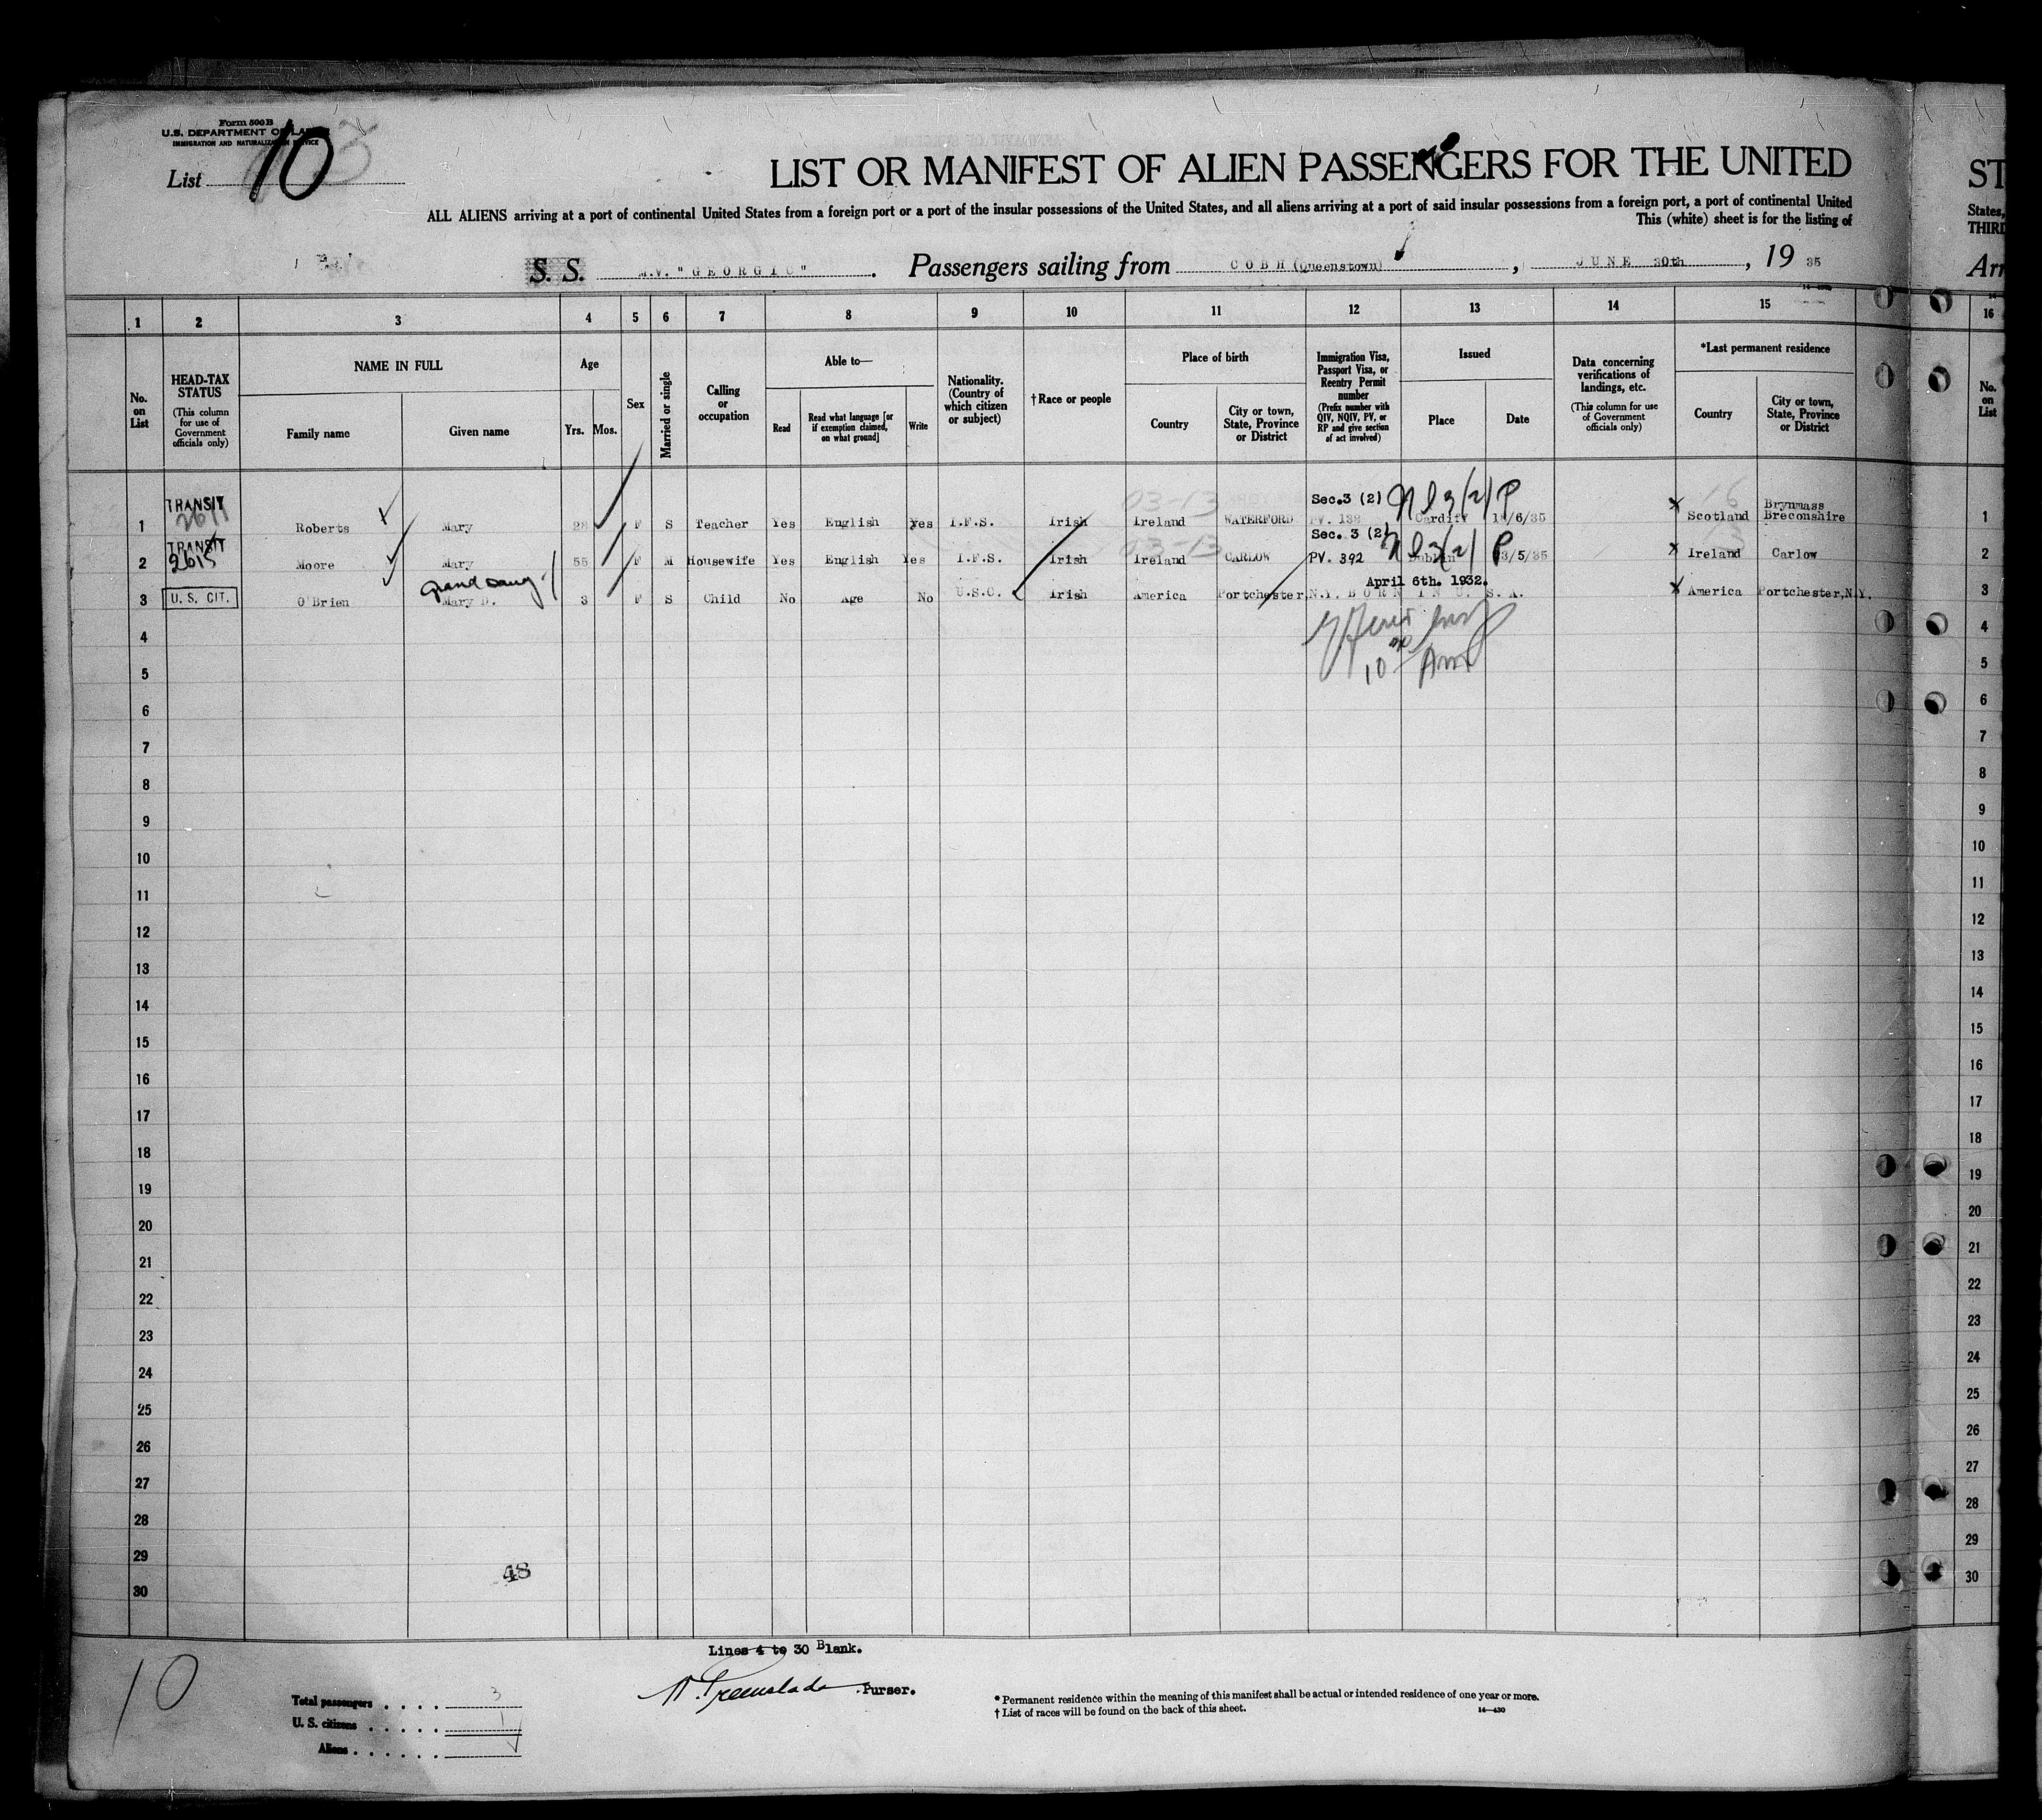 Form 500 B
U.S. DEPARTMENT OF LABOR
IMMIGRATION AND NATURALIZATION SERVICE
List 10 3
LIST OR MANIFEST OF ALIEN PASSENGERS FOR THE UNITED
ST
ALL ALIENS arriving at a port of continental United States from a foreign port or a port of the insular possessions of the United States, and all aliens arriving at a port of said insular possessions from a foreign port, a port of continental United
States,
This (white) sheet is for the listing of
THIRD
S. S. M.V. "GEORGIC". Passengers sailing from COBH (Queenstown), JUNE 30th, 19 35
Arr
1 2 3 4 5 6 7 8 9 10 11 12 13 14 15
16
No. on List
HEAD-TAX STATUS
(This column for use of Government officials only)
NAME IN FULL
Family name
Given name
Age
Yrs. Mos.
Sex
Married or single
Calling or occupation
Able to—
Read
Read what language [or if exemption claimed, on what ground]
Write
Nationality. (Country of which citizen or subject)
†Race or people
Place of birth
Country
City or town, State, Province or District
Immigration Visa, Passport Visa, or Reentry Permit number
(Prefix number with QIV, NQIV, PV, or RP and give section of act involved)
Issued
Place
Date
Data concerning verifications of landings, etc.
(This column for use of Government officials only)
*Last permanent residence
Country
City or town, State, Province or District
No. on List
TRANSIT 03-13 Sec.3 (2) 16 Brynmass
1 Roberts Mary 28 F S Teacher Yes English Yes I.F.S. Irish Ireland WATERFORD PV. Cardiff /6/35 x Scotland Breconshire 1
TRANSIT 03-13 Sec. 3 (2) 13
2 2615 Moore Mary 55 F M Housewife Yes English Yes I.F.S. Irish Ireland CARLOW PV. 392 Dublin /5/35 x Ireland Carlow 2
grand daug. April 6th. 1932.
3 U. S. CIT. O'Brien Mary D. 3 F S Child No Age No U.S.C. Irish America Portchester,N.Y. BORN IN U. S. A. x America Portchester,N.Y. 3
4 4
5 10 AM 5
6 6
7 7
8 8
9 9
10 10
11 11
12 12
13 13
14 14
15 15
16 16
17 17
18 18
19 19
20 20
21 21
22 22
23 23
24 24
25 25
26 26
27 27
28 28
29 29
30 48 30
Lines 4 to 30 Blank.
10
Purser.
Total passengers . . . . 3
U. S. citizens . . . . . 1
Aliens . . . . . .
* Permanent residence within the meaning of this manifest shall be actual or intended residence of one year or more.
† List of races will be found on the back of this sheet.
14—430